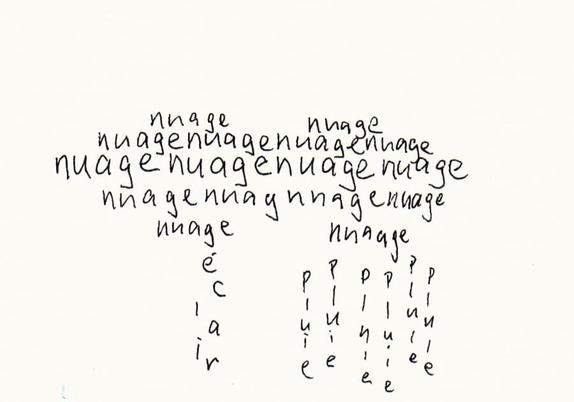 nuage nuage
nuagenuagenuagenuage
nuage nuagenuage nuage
nuage nuag nuagenuage
nuage nuaage
éclair pluie pluie pluie pluie pluie pluie